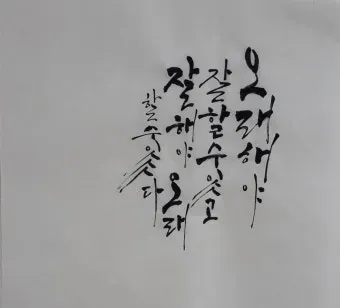 오래해야
잘할수있고
잘해야오래
할수있다